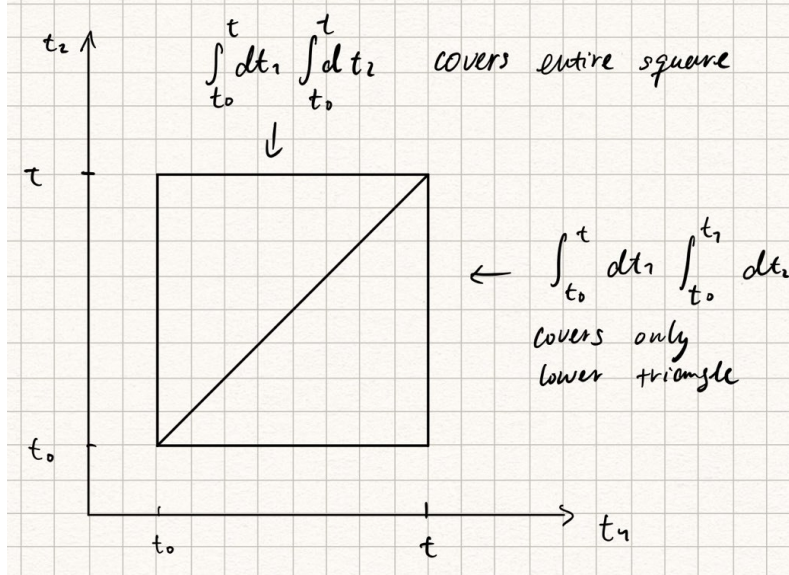 t₂
∫ₜ₀ᵗ dt₁ ∫ₜ₀ᵗ dt₂ covers entire square
t
← ∫ₜ₀ᵗ dt₁ ∫ₜ₀ᵗ₁ dt₂
covers only
lower triangle
t₀
t₁
t₀ t